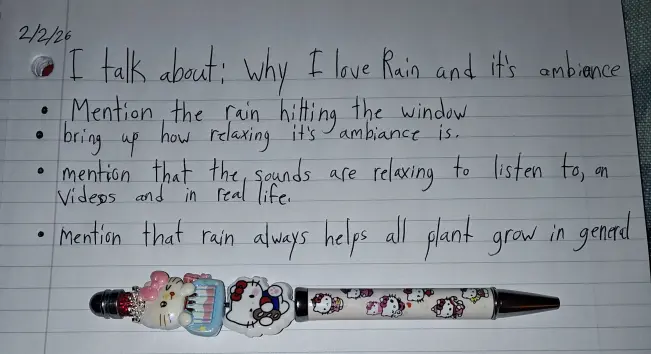 2/2/26
I talk about; Why I love Rain and it's ambiance
• Mention the rain hitting the window
• bring up how relaxing it's ambiance is.
• mention that the sounds are relaxing to listen to, on
Videos and in real life.
• mention that rain always helps all plant grow in general